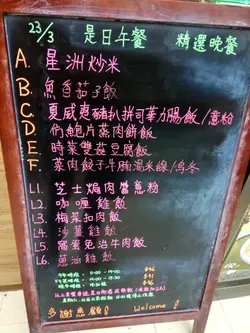 23/3 是日午餐 精選晚餐
A. 星洲炒米
B. 魚香茄子飯
C. 夏威夷豬扒拼可華力腸/飯/意粉
D. 仿鮑片蒸肉餅飯
E. 時菜雙菇豆腐飯
F. 菜肉餃子牛腩湯米線/烏冬
L1. 芝士焗肉醬意粉
L2. 咖喱雞飯
L3. 梅菜扣肉飯
L4. 沙薑雞飯
L5. 窩蛋免治牛肉飯
L6. 蔥油雞飯
多謝惠顧! Welcome!